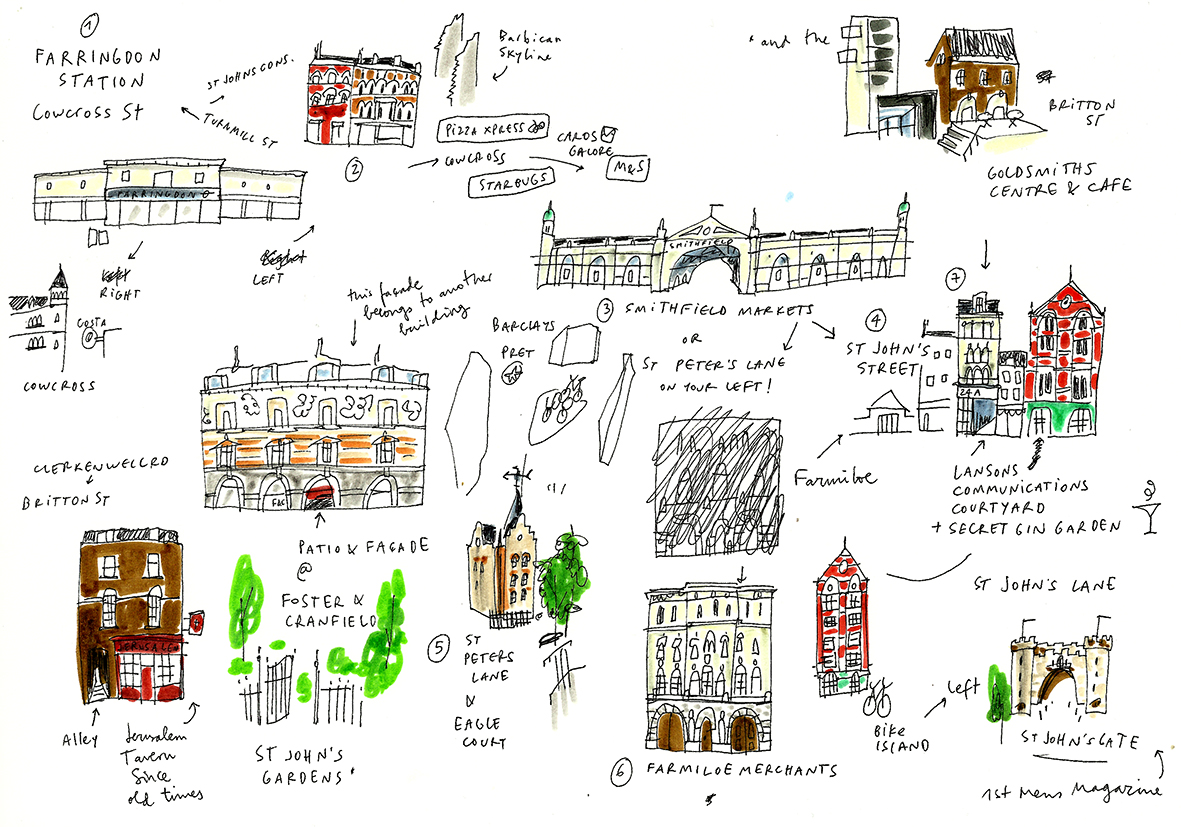 1
FARRINGDON
STATION
COWCROSS ST
ST JOHNS CONS.
TURNMILL ST
FARRINGDON
RIGHT
LEFT
COSTA
COWCROSS
2
Barbican
Skyline
PIZZA XPRESS
COWCROSS
STARBUGS
CARDS
GALORE
M&S
* and the
BRITTON
ST
GOLDSMITHS
CENTRE & CAFE
SMITHFIELD
3 SMITHFIELD MARKETS
OR
ST PETER'S LANE
ON YOUR LEFT!
4
ST JOHN'S
STREET
Farmiloe
7
24A
LANSONS
COMMUNICATIONS
COURTYARD
+ SECRET GIN GARDEN
this façade
belongs to another
building
BARCLAYS
PRET
F&C
PATIO & FAÇADE
@
FOSTER &
CRANFIELD
CLERKENWELL RD
BRITTON ST
JERUSALEM
Alley
Jerusalem
Tavern
Since
old times
ST JOHN'S
GARDENS*
5
ST
PETERS
LANE
&
EAGLE
COURT
6 FARMILOE MERCHANTS
BIKE
ISLAND
left
ST JOHN'S LANE
ST JOHN'S GATE
1st Mens Magazine